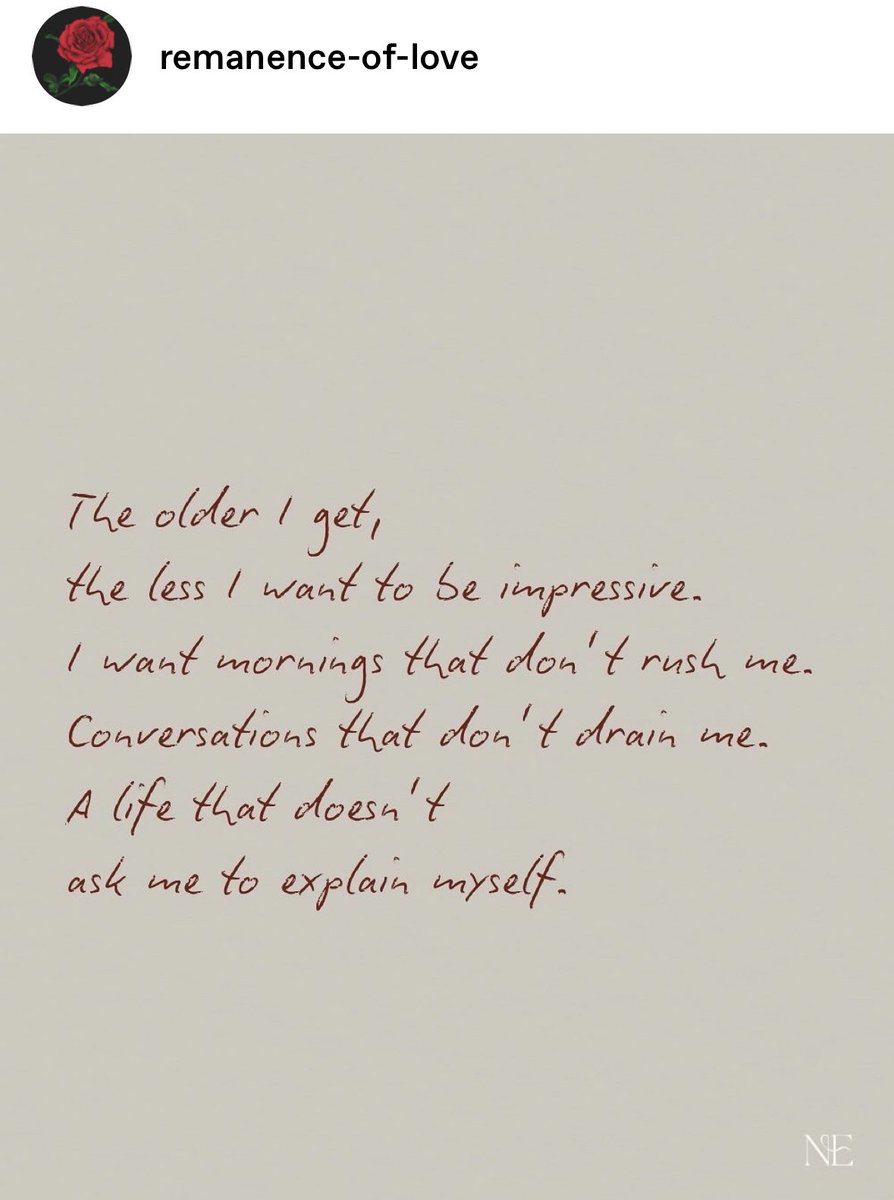 remanence-of-love
The older I get,
the less I want to be impressive.
I want mornings that don't rush me.
Conversations that don't drain me.
A life that doesn't
ask me to explain myself.
NE